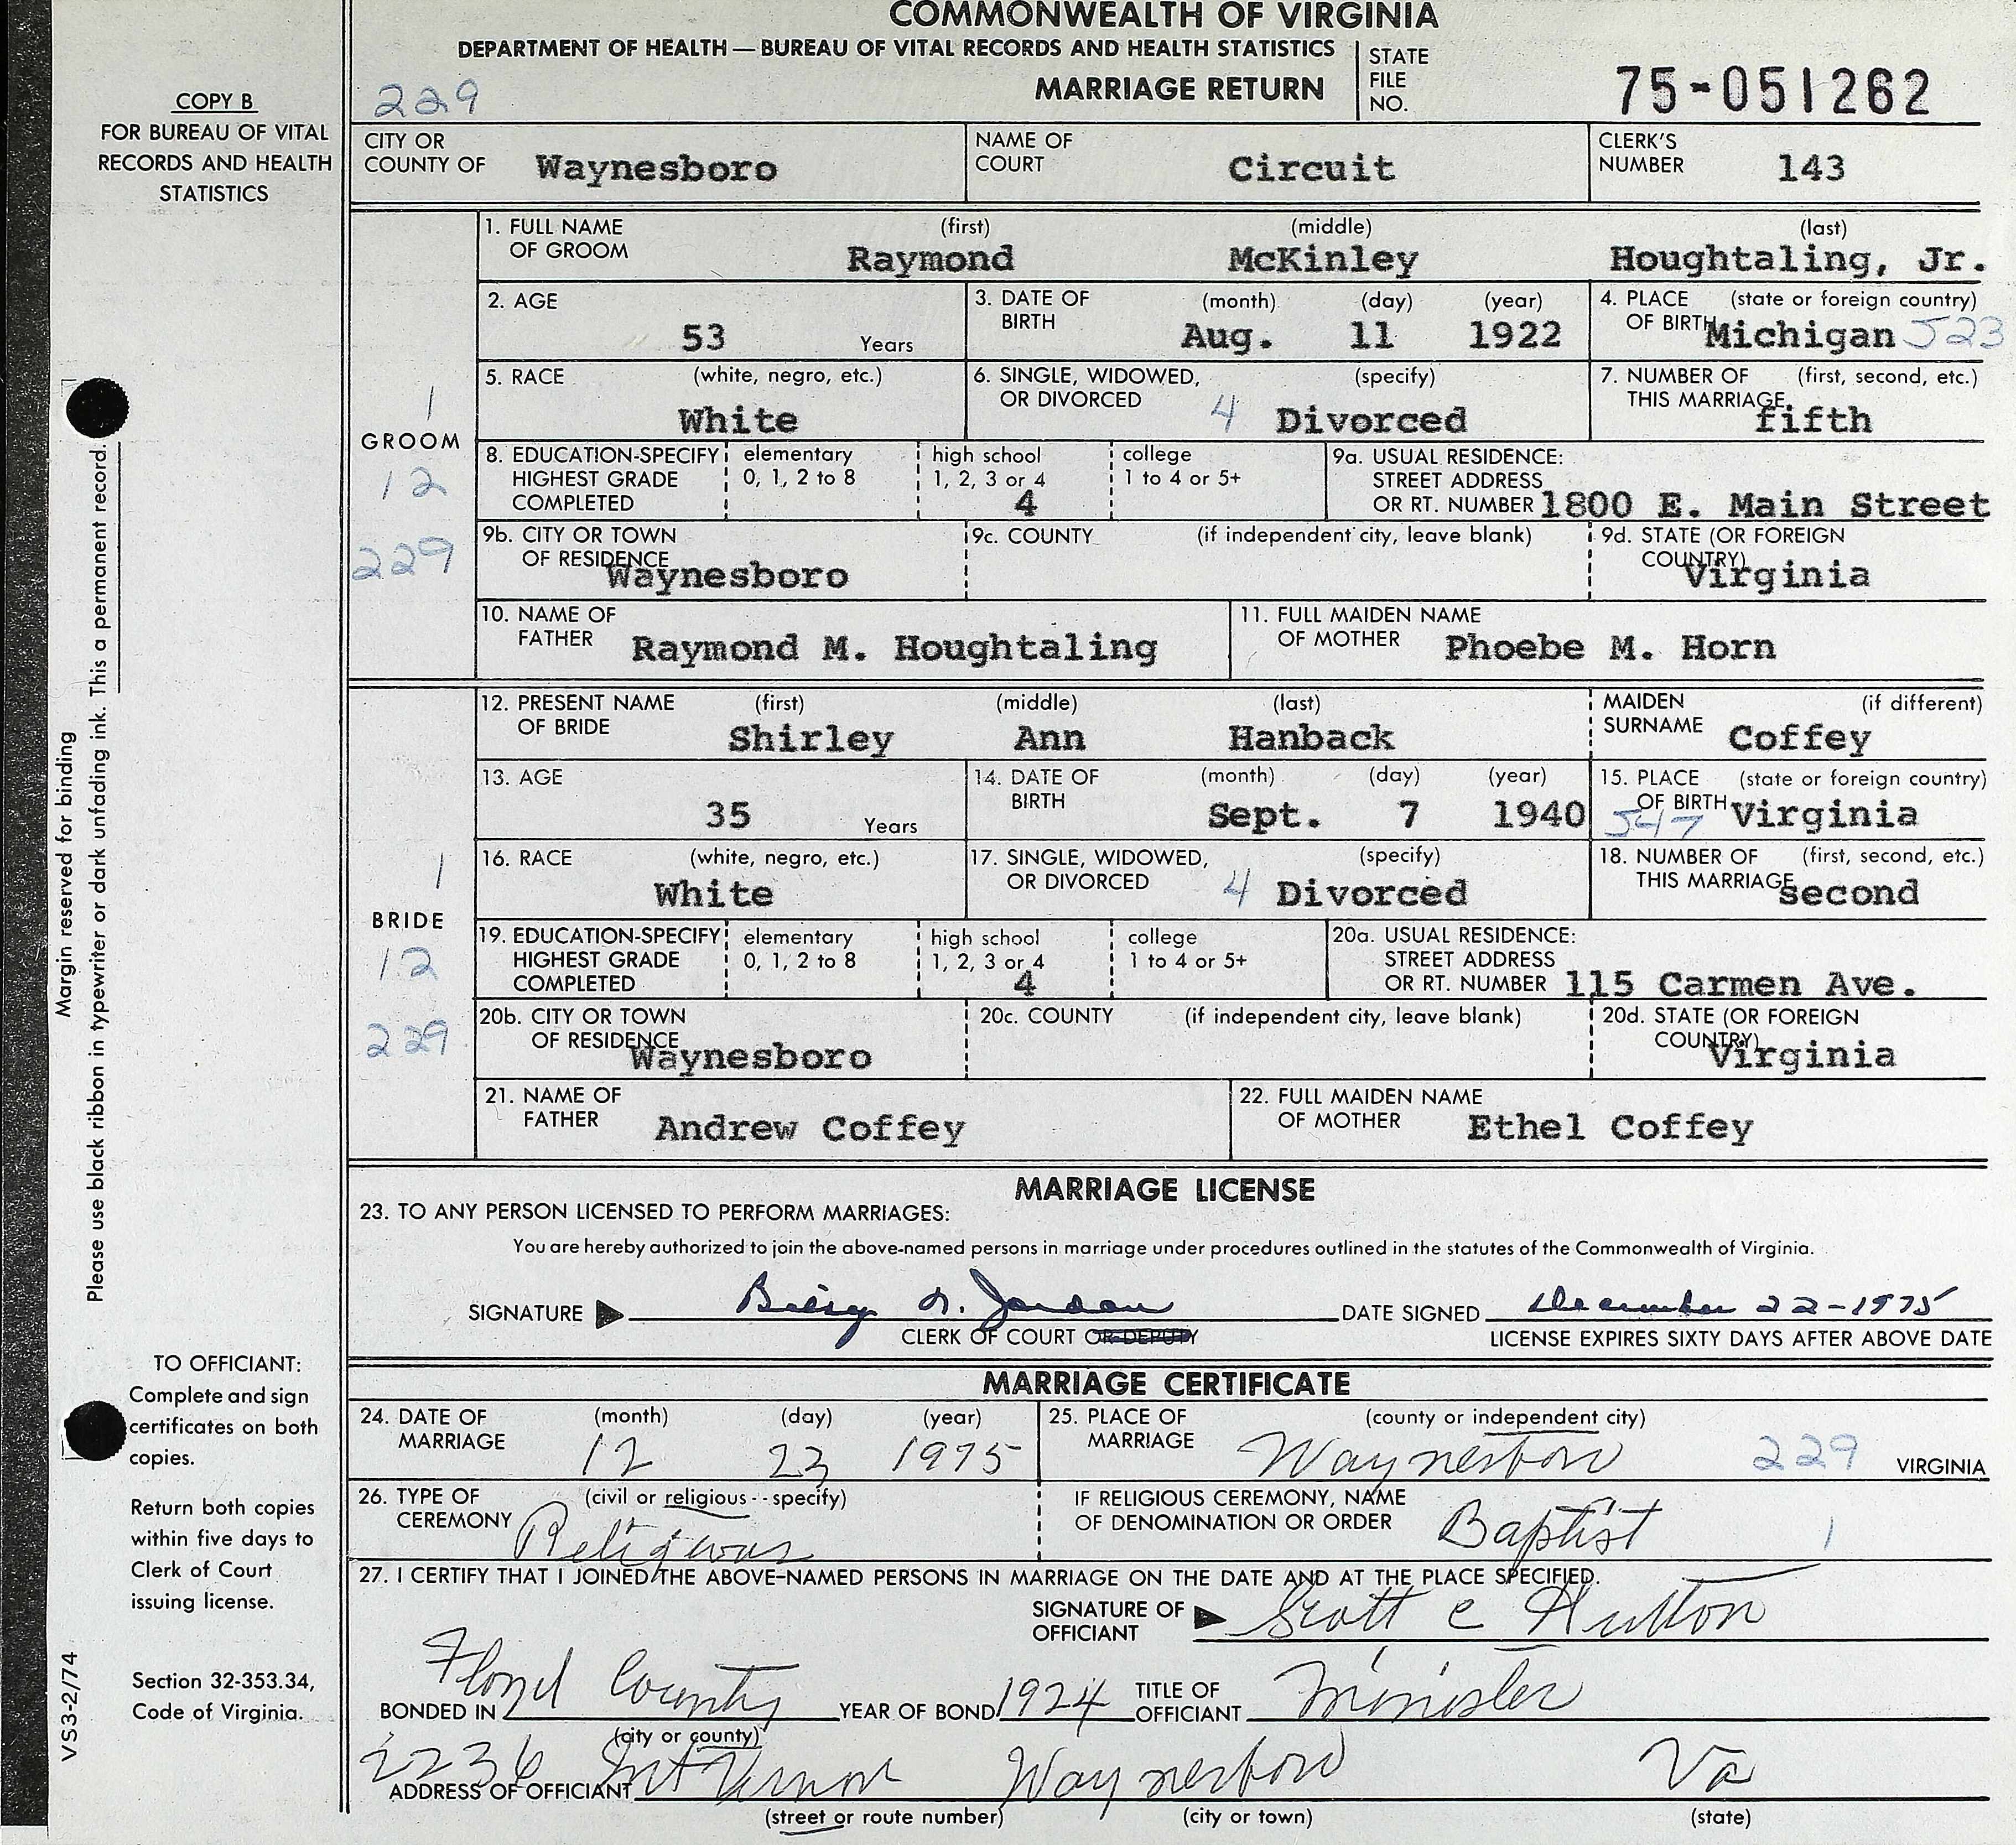 COMMONWEALTH OF VIRGINIA
DEPARTMENT OF HEALTH — BUREAU OF VITAL RECORDS AND HEALTH STATISTICS
MARRIAGE RETURN
STATE FILE NO. 75-051262
229
COPY B
FOR BUREAU OF VITAL
RECORDS AND HEALTH
STATISTICS
CITY OR COUNTY OF Waynesboro NAME OF COURT Circuit CLERK'S NUMBER 143
1. FULL NAME OF GROOM (first) Raymond (middle) McKinley (last) Houghtaling, Jr.
2. AGE 53 Years 3. DATE OF BIRTH (month) Aug. (day) 11 (year) 1922 4. PLACE OF BIRTH (state or foreign country) Michigan 523
5. RACE (white, negro, etc.) White 6. SINGLE, WIDOWED, OR DIVORCED (specify) 4 Divorced 7. NUMBER OF THIS MARRIAGE (first, second, etc.) fifth
1
GROOM
12
229
8. EDUCATION-SPECIFY HIGHEST GRADE COMPLETED elementary 0, 1, 2 to 8 high school 1, 2, 3 or 4 4 college 1 to 4 or 5+ 9a. USUAL RESIDENCE: STREET ADDRESS OR RT. NUMBER 1800 E. Main Street
9b. CITY OR TOWN OF RESIDENCE Waynesboro 9c. COUNTY (if independent city, leave blank) 9d. STATE (OR FOREIGN COUNTRY) Virginia
10. NAME OF FATHER Raymond M. Houghtaling 11. FULL MAIDEN NAME OF MOTHER Phoebe M. Horn
12. PRESENT NAME OF BRIDE (first) Shirley (middle) Ann (last) Hanback MAIDEN SURNAME (if different) Coffey
13. AGE 35 Years 14. DATE OF BIRTH (month) Sept. (day) 7 (year) 1940 15. PLACE OF BIRTH (state or foreign country) 547 Virginia
16. RACE (white, negro, etc.) White 17. SINGLE, WIDOWED, OR DIVORCED (specify) 4 Divorced 18. NUMBER OF THIS MARRIAGE (first, second, etc.) second
1
BRIDE
12
229
19. EDUCATION-SPECIFY HIGHEST GRADE COMPLETED elementary 0, 1, 2 to 8 high school 1, 2, 3 or 4 4 college 1 to 4 or 5+ 20a. USUAL RESIDENCE: STREET ADDRESS OR RT. NUMBER 115 Carmen Ave.
20b. CITY OR TOWN OF RESIDENCE Waynesboro 20c. COUNTY (if independent city, leave blank) 20d. STATE (OR FOREIGN COUNTRY) Virginia
21. NAME OF FATHER Andrew Coffey 22. FULL MAIDEN NAME OF MOTHER Ethel Coffey
Margin reserved for binding
Please use black ribbon in typewriter or dark unfading ink. This a permanent record.
MARRIAGE LICENSE
23. TO ANY PERSON LICENSED TO PERFORM MARRIAGES:
You are hereby authorized to join the above-named persons in marriage under procedures outlined in the statutes of the Commonwealth of Virginia.
SIGNATURE Jordan DATE SIGNED December 22-1975
CLERK OF COURT OR DEPUTY LICENSE EXPIRES SIXTY DAYS AFTER ABOVE DATE
TO OFFICIANT:
Complete and sign
certificates on both
copies.
Return both copies
within five days to
Clerk of Court
issuing license.
Section 32-353.34,
Code of Virginia.
VS3-2/74
MARRIAGE CERTIFICATE
24. DATE OF MARRIAGE (month) 12 (day) 23 (year) 1975 25. PLACE OF MARRIAGE (county or independent city) Waynesboro 229 VIRGINIA
26. TYPE OF CEREMONY (civil or religious--specify) Religious IF RELIGIOUS CEREMONY, NAME OF DENOMINATION OR ORDER Baptist 1
27. I CERTIFY THAT I JOINED THE ABOVE-NAMED PERSONS IN MARRIAGE ON THE DATE AND AT THE PLACE SPECIFIED.
SIGNATURE OF OFFICIANT Scott C Hutton
BONDED IN Floyd County (city or county) YEAR OF BOND 1924 TITLE OF OFFICIANT Minister
ADDRESS OF OFFICIANT 2236 Mt Vernon Waynesboro Va
(street or route number) (city or town) (state)